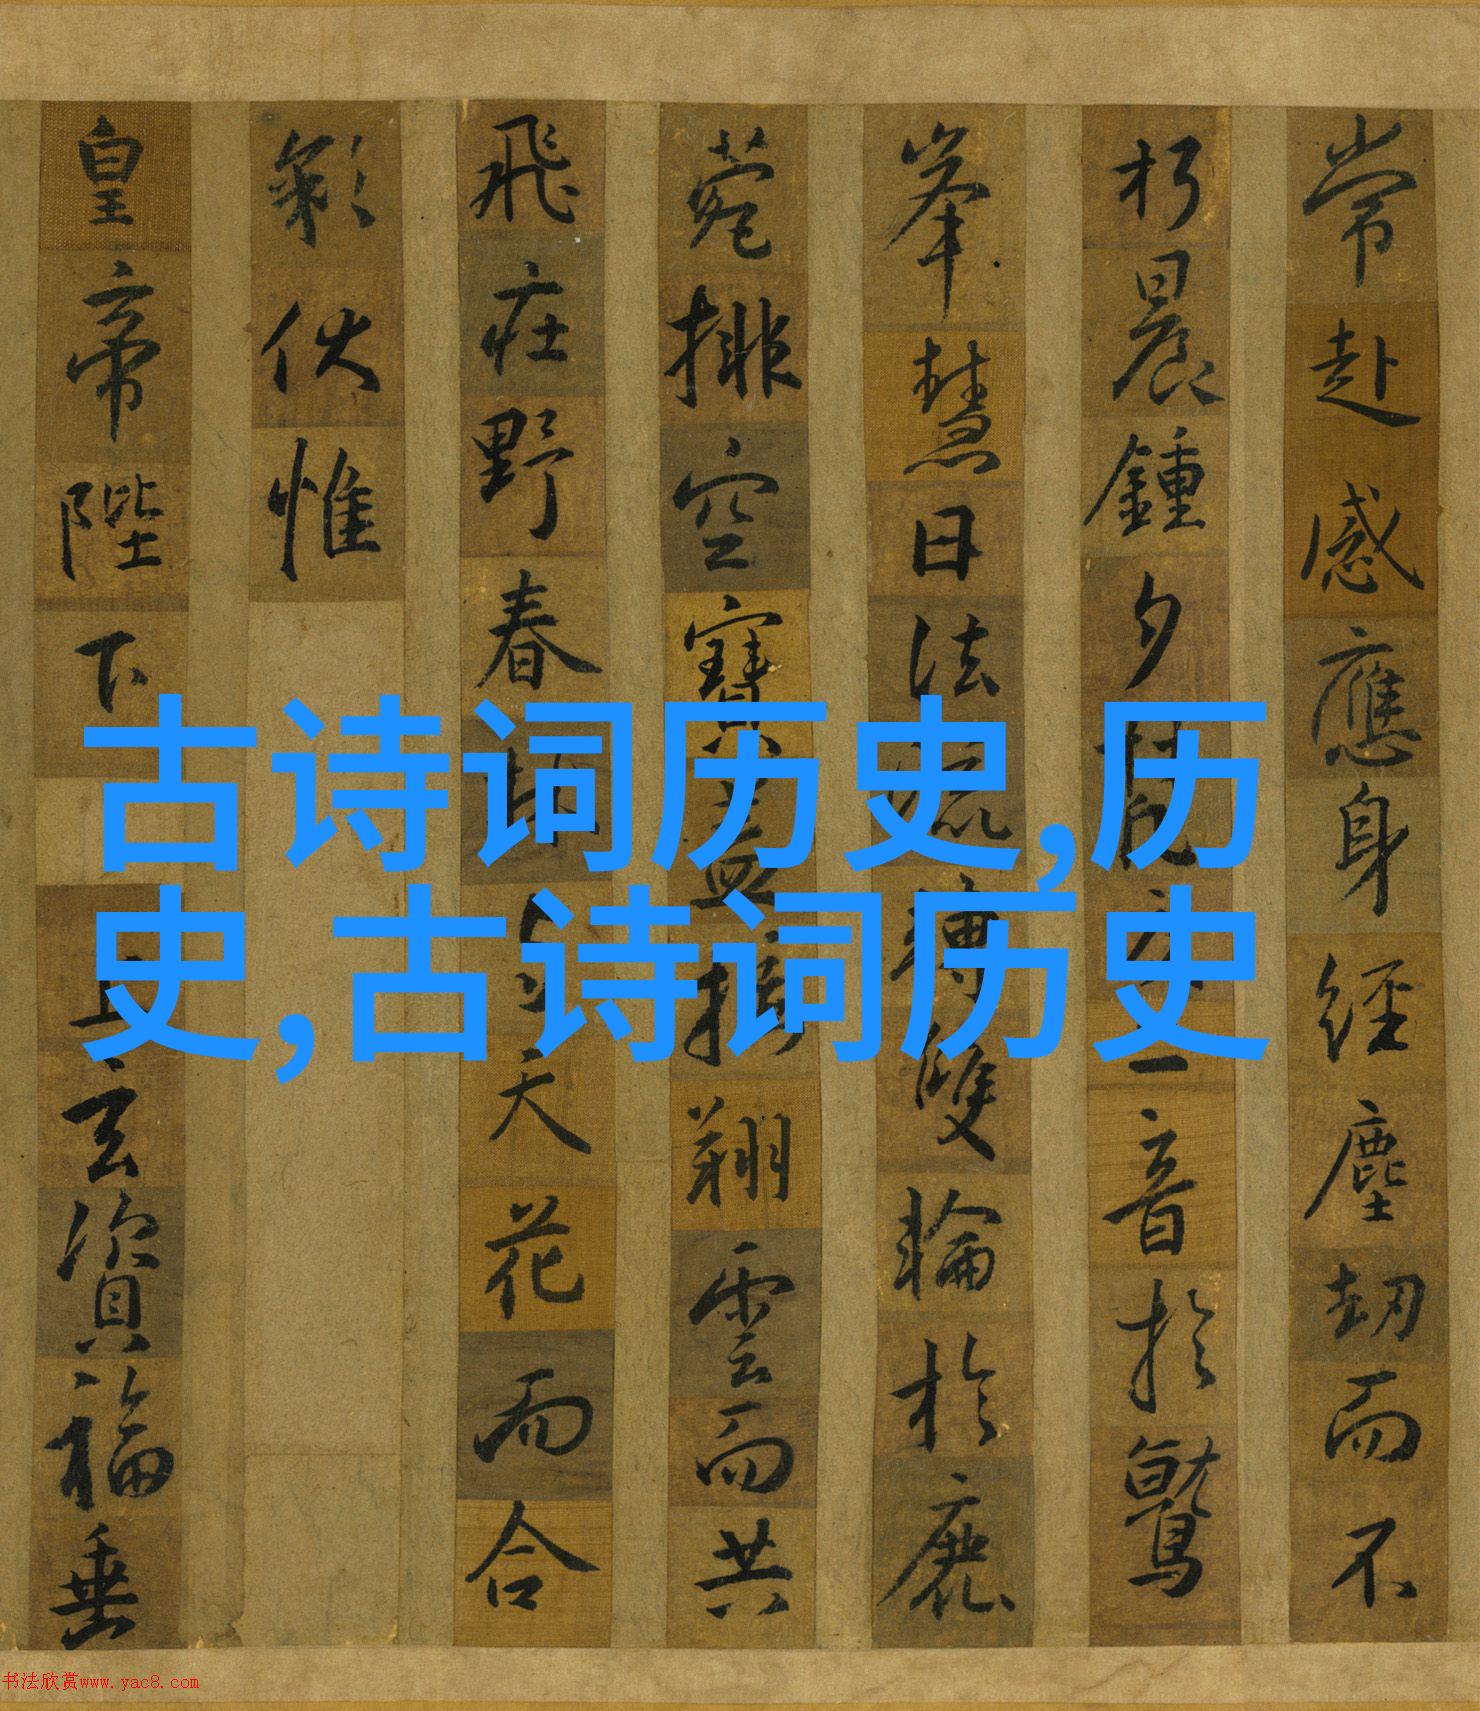 常赴感應身經塵劫而不
朽晨鍾夕梵交二音於鷲
峯慧日法流轉雙輪於鹿
菀排空寶蓋接翔雲而共
飛莊野春林与天花而合
彩伏惟
皇帝陛下上玄資福垂
古诗词历史,历
史,古诗词历史
书法欣赏www.yac8.com